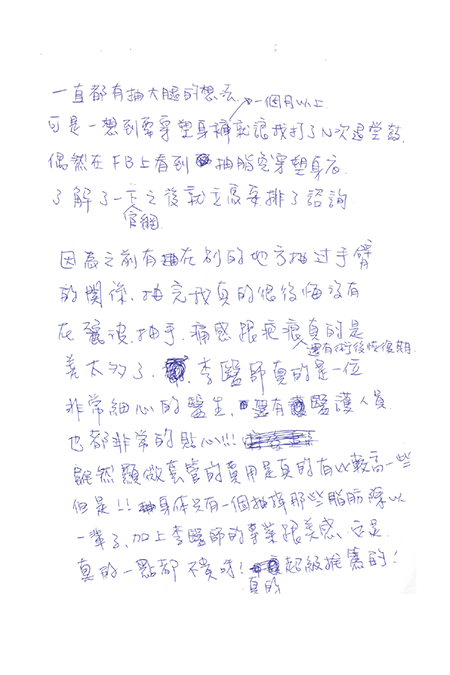 一直都有抽大腿的想法.
一個月以上
可是一想到要穿塑身褲就讓我打了N次退堂鼓.
偶然在FB上看到 抽脂免穿塑身衣.
了解了一下之後就立馬安排了諮詢
官網
因為之前有抽在別的地方抽过手臂
的關係,抽完我真的很後悔沒有
在麗波抽手.痛感跟疤痕真的是
還有術後恢復期.
差太多了. 李醫師真的是一位
非常細心的醫生, 還有 醫護人員
也都非常的貼心!!!
雖然顯微套管的費用是真的有比較高一些
但是!! 身体只有一個抽掉那些脂肪際以
一輩子,加上李醫師的專業跟美感.
真的一點都不貴呀! 超級推薦的!
真的